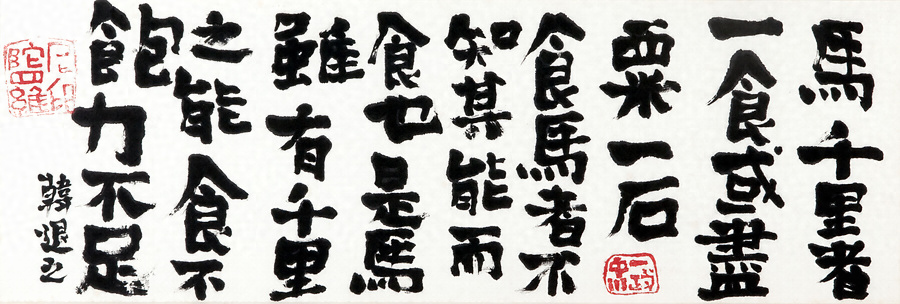 馬千里者
一食或盡
粟一石
食馬者不
知其能而
食也是馬
雖有千里
之能食不
飽力不足
韓退之